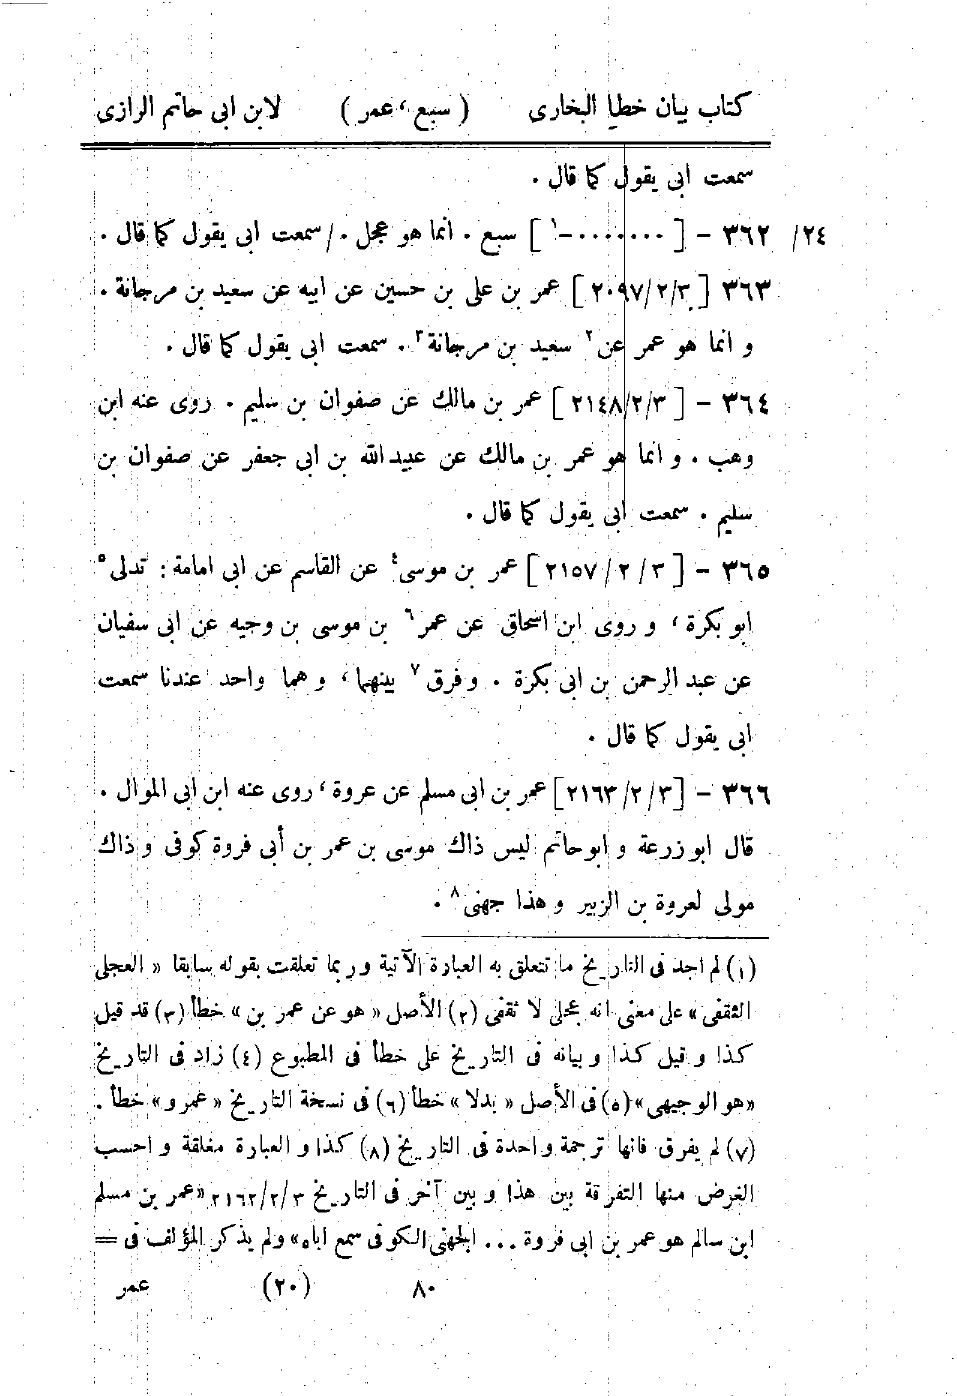 كتاب بيان خطإ البخارى ( سبع ، عمر ) لابن ابى حاتم الرازى
سمعت ابى يقول كما قال .
٢٤/ ٣٦٢ - [ ٠٠٠٠٠٠٠-١ ] سبع . انما هو عجل . / سمعت ابى يقول كما قال .
٣٦٣ [ ٢٠٩٧/٢/٣ ] عمر بن على بن حسين عن ابيه عن سعيد بن مرجانة .
و انما هو عمر عن٢ سعيد بن مرجانة٣ . سمعت ابى يقول كما قال .
٣٦٤ - [ ٢١٤٨/٢/٣ ] عمر بن مالك عن صفوان بن سليم . روى عنه ابن
وهب . و انما هو عمر بن مالك عن عبيد الله بن ابى جعفر عن صفوان بن
سليم . سمعت ابى يقول كما قال .
٣٦٥ - [ ٢١٥٧/٢/٣ ] عمر بن موسى٤ عن القاسم عن ابى امامة : تدلى٥
ابو بكرة ، و روى ابن اسحاق عن عمر٦ بن موسى بن وجيه عن ابى سفيان
عن عبد الرحمن بن ابى بكرة . و فرق٧ بينهما ، و هما واحد عندنا سمعت
ابى يقول كما قال .
٣٦٦ - [ ٢١٦٣/٢/٣ ] عمر بن ابى مسلم عن عروة ، روى عنه ابن ابى الموال .
قال ابو زرعة و ابو حاتم ليس ذاك موسى بن عمر بن أبى فروة كوفى و ذاك
مولى لعروة بن الزبير و هذا جهنى٨ .
(١) لم اجد فى التاريخ ما تتعلق به العبارة الآتية و ربما تعلقت بقوله سابقا « العجلى
الثقفى » على معنى انه عجلى لا ثقفى (٢) الأصل « هو عن عمر بن » خطأ (٣) قد قيل
كذا و قيل كذا و بيانه فى التاريخ على خطأ فى المطبوع (٤) زاد فى التاريخ
« هو الوجيهى » (٥) فى الأصل « بدلا » خطأ (٦) فى نسخة التاريخ « عمرو » خطأ .
(٧) لم يفرق فانها ترجمة واحدة فى التاريخ (٨) كذا و العبارة مغلقة و احسب
الغرض منها التفرقة بين هذا و بين آخر فى التاريخ ٢١٦٢/٢/٣ « عمر بن مسلم
ابن سالم هو عمر بن ابى فروة ... الجهنى الكوفى سمع اباه » ولم يذكر المؤلف فى =
٨٠ (٢٠) عمر